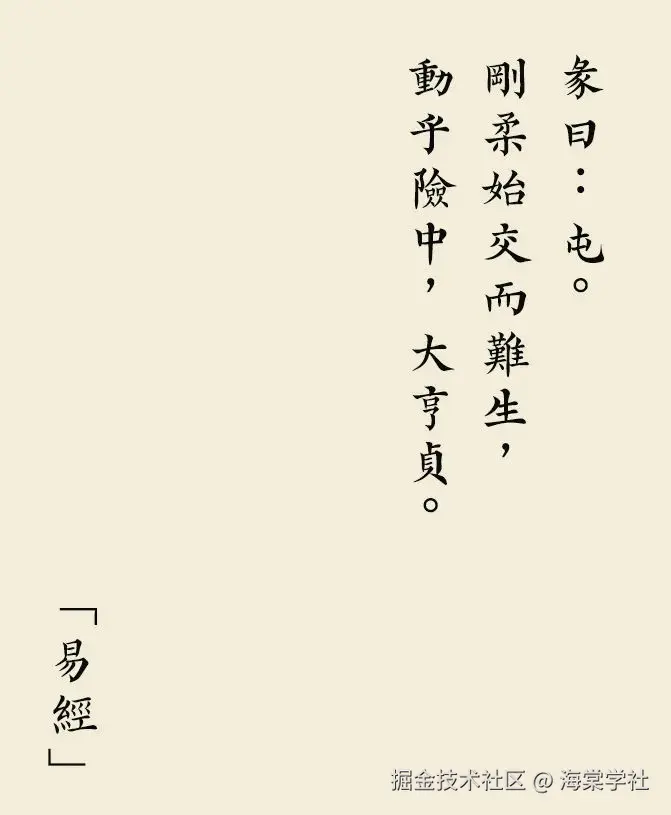 彖曰：屯。
剛柔始交而難生，
動乎險中，大亨貞。
「易經」
掘金技术社区 @ 海棠学社